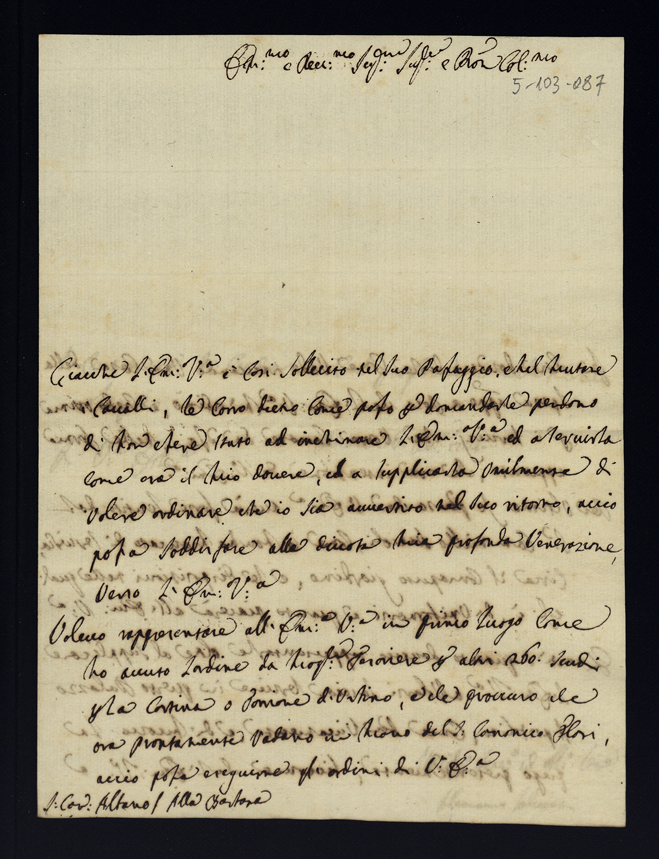 Em.mo e Rev.mo Sig.re Sig.re e Pron Col.mo
5-103-087
Giacche L'Em: V.a è Cosi Sollecito nel Suo Passaggio, e nel mutare
Cavalli, le Corro dietro Come posso p domandarle perdono
di non essere stato ad inchinare L'Em:a V.a ed a servirla
come era il mio dovere, ed a Supplicarla Umilmente di
volere ordinare che io Sia avvertito nel Suo ritorno, accio
possa Soddisfare alla divota mia profonda Venerazione,
Verso L'Em: V:a
Volevo rappresentare all'Em:a V:a in primo luogo Come
ho avuto l'ordine da altri 260: Scudi
p la Cortina o Porzione d'Urbino, e che procuro che
ora prontamente vadano in mano del S. Canonico Flori,
accio possa eseguirne gl'ordini di V: E:a
S: Car: Albano / Alla